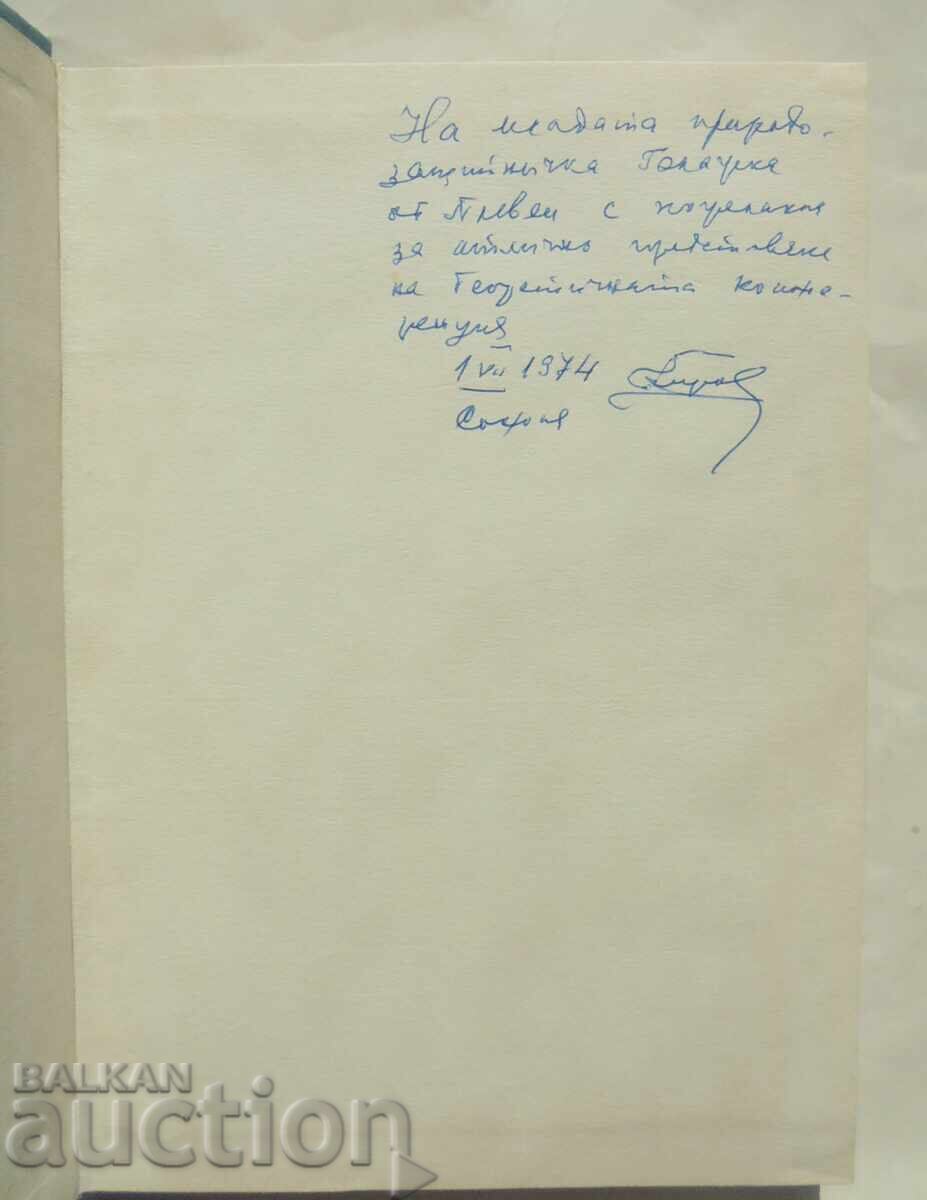 На младата природо-
защитничка
от Плевен с пожелание
за отлично представяне
на Теоретичната конфе-
ренция
1 VII 1974
София
BALKAN
auction